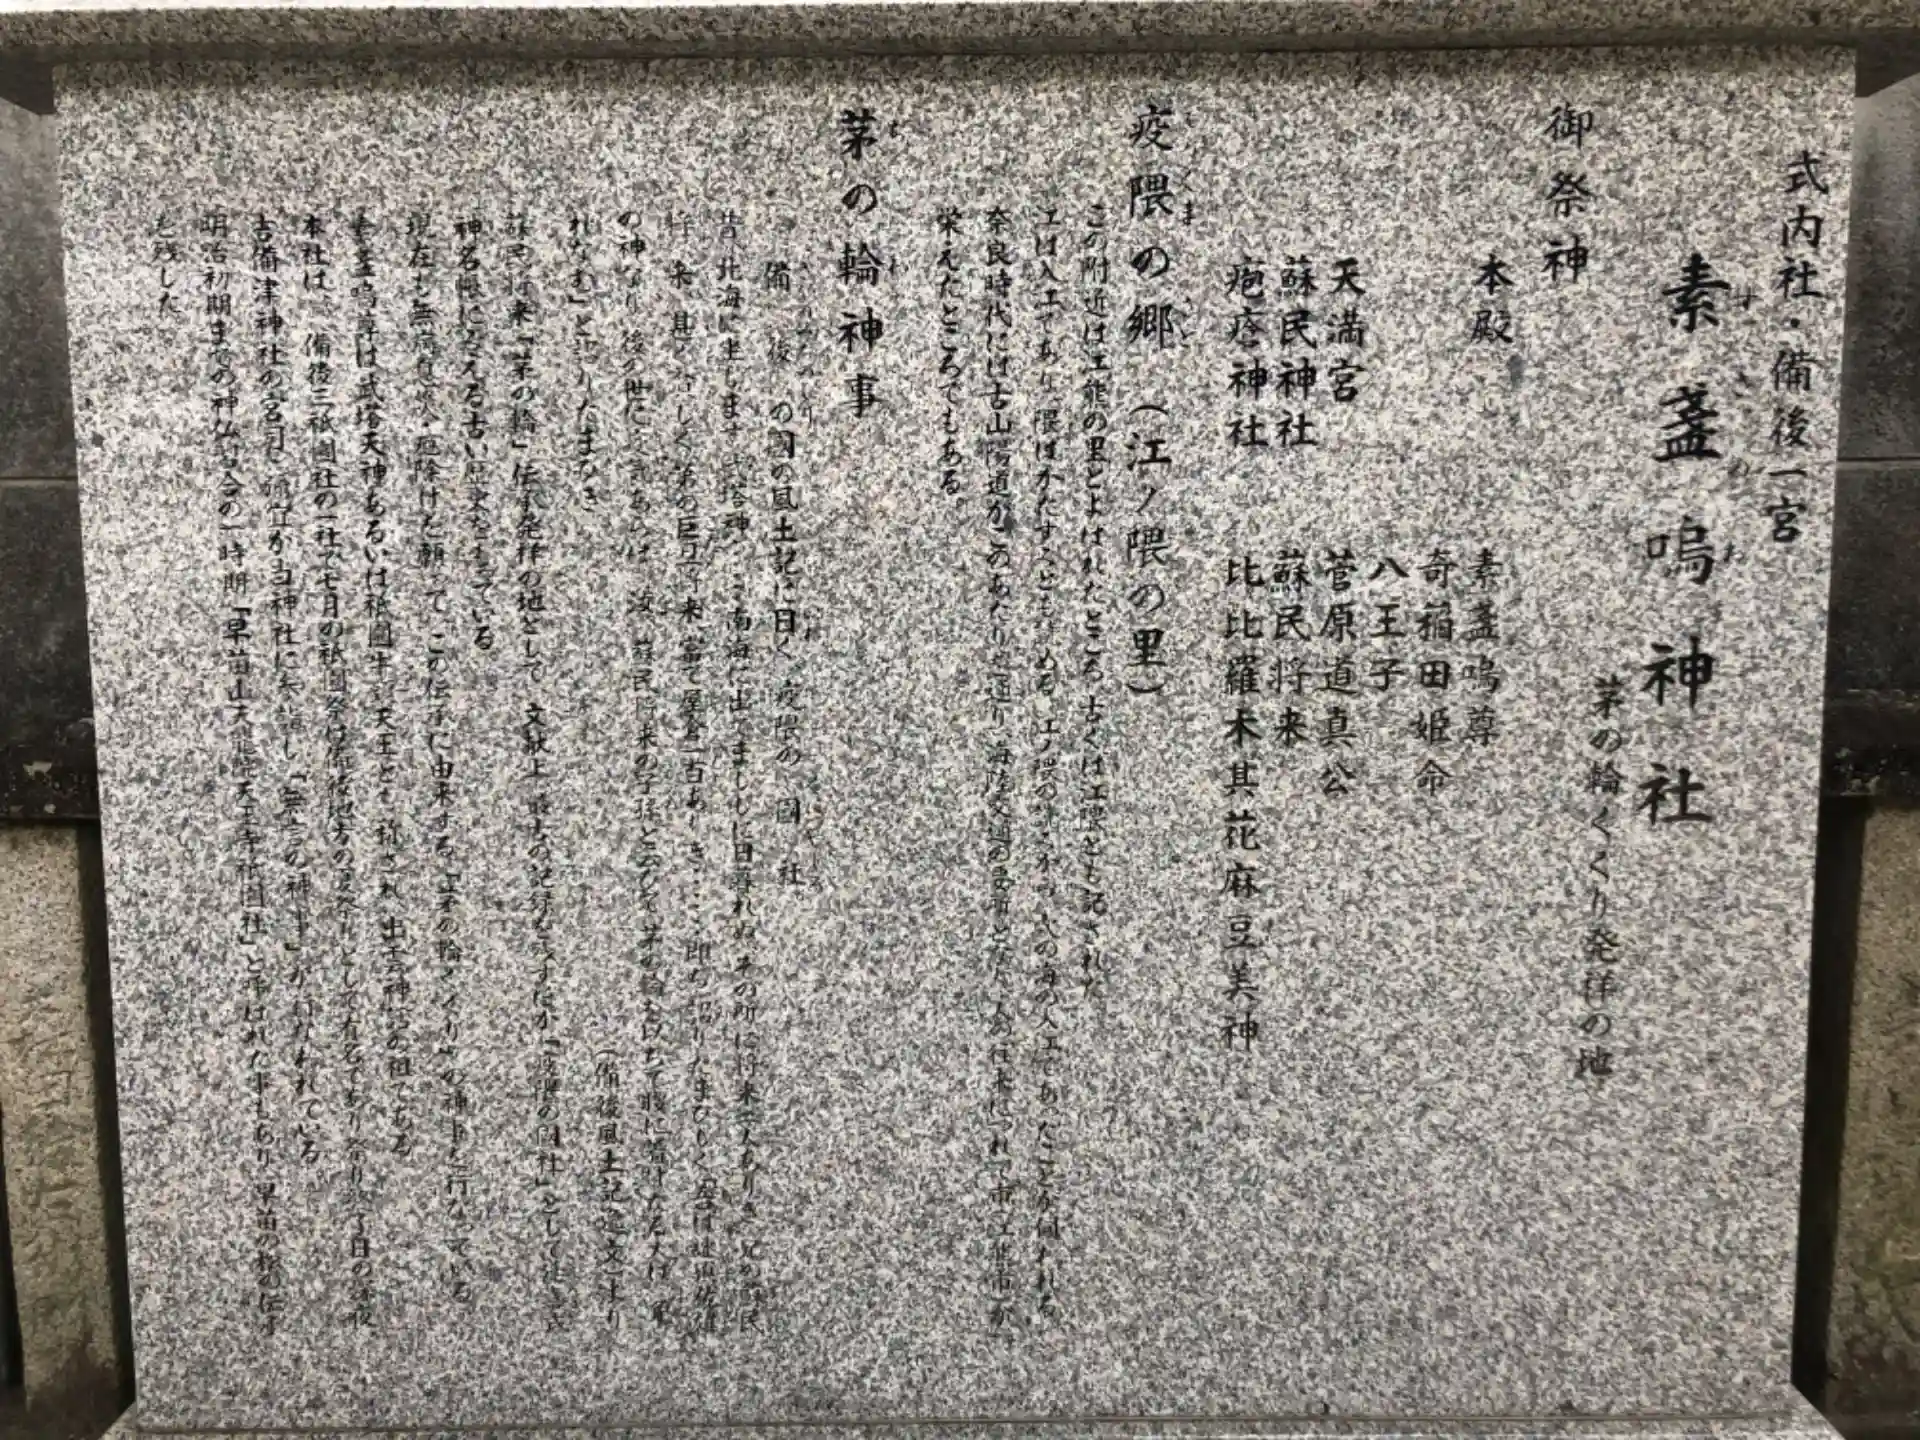 式内社・備後一宮
素盞嗚神社
茅の輪くぐり発祥の地
御祭神
本殿 素盞嗚尊
奇稲田姫命
八王子
天満宮 菅原道真公
蘇民神社 蘇民将来
疱瘡神社 比比羅木其花麻豆美神
疫隈の郷(江ノ隈の里)
この附近は江熊の里とよばれたところ 古くは江隈とも記された
江は入江であり、隈はかたすことも
奈良時代には古山陽道がこのあたりを通り 海陸交通の要所となり人の往来につれ「市」江熊市が
栄えたところでもある。
茅の輪神事
備後の國の風土記に曰く 疫隈の國社。
昔、北海に坐します 武塔神 南海に出でましに日暮れぬ その所に将来二人ありき 兄が蘇民
将来 甚 貧しく弟の巨旦将来 富て屋倉一百ありき……即ち詔りたまひしく 吾は速須佐雄
の神なり 後の世に疫気あらば 汝 蘇民将来の子孫と云ひて茅の輪を以ちて腰に着けたる人は
れなむ」と詔りたまひき
(備後風土記逸文)より
蘇民将来「茅の輪」伝承発祥の地として 文献上 最古の記録ですが「疫隈の國社」として 延喜式
神名帳に
現在も無病息災・厄除けを願って この伝承に由来する「茅の輪くぐり」の神事を行なっている
素盞嗚尊は武塔天神あるいは祇園牛頭天王とも称され 出雲神話の祖である
本社は、備後三祇園社の一社で七月の祇園祭は備後地方の夏祭りとして有名であり 祭り終了日の深夜
吉備津神社の宮司・祢宜が当神社に参詣し「無言の神事」が行なわれている
明治初期までの神仏習合の一時期「早苗山天龍院天王寺祇園社」と呼ばれた事もあり 早苗の松の伝
を残した